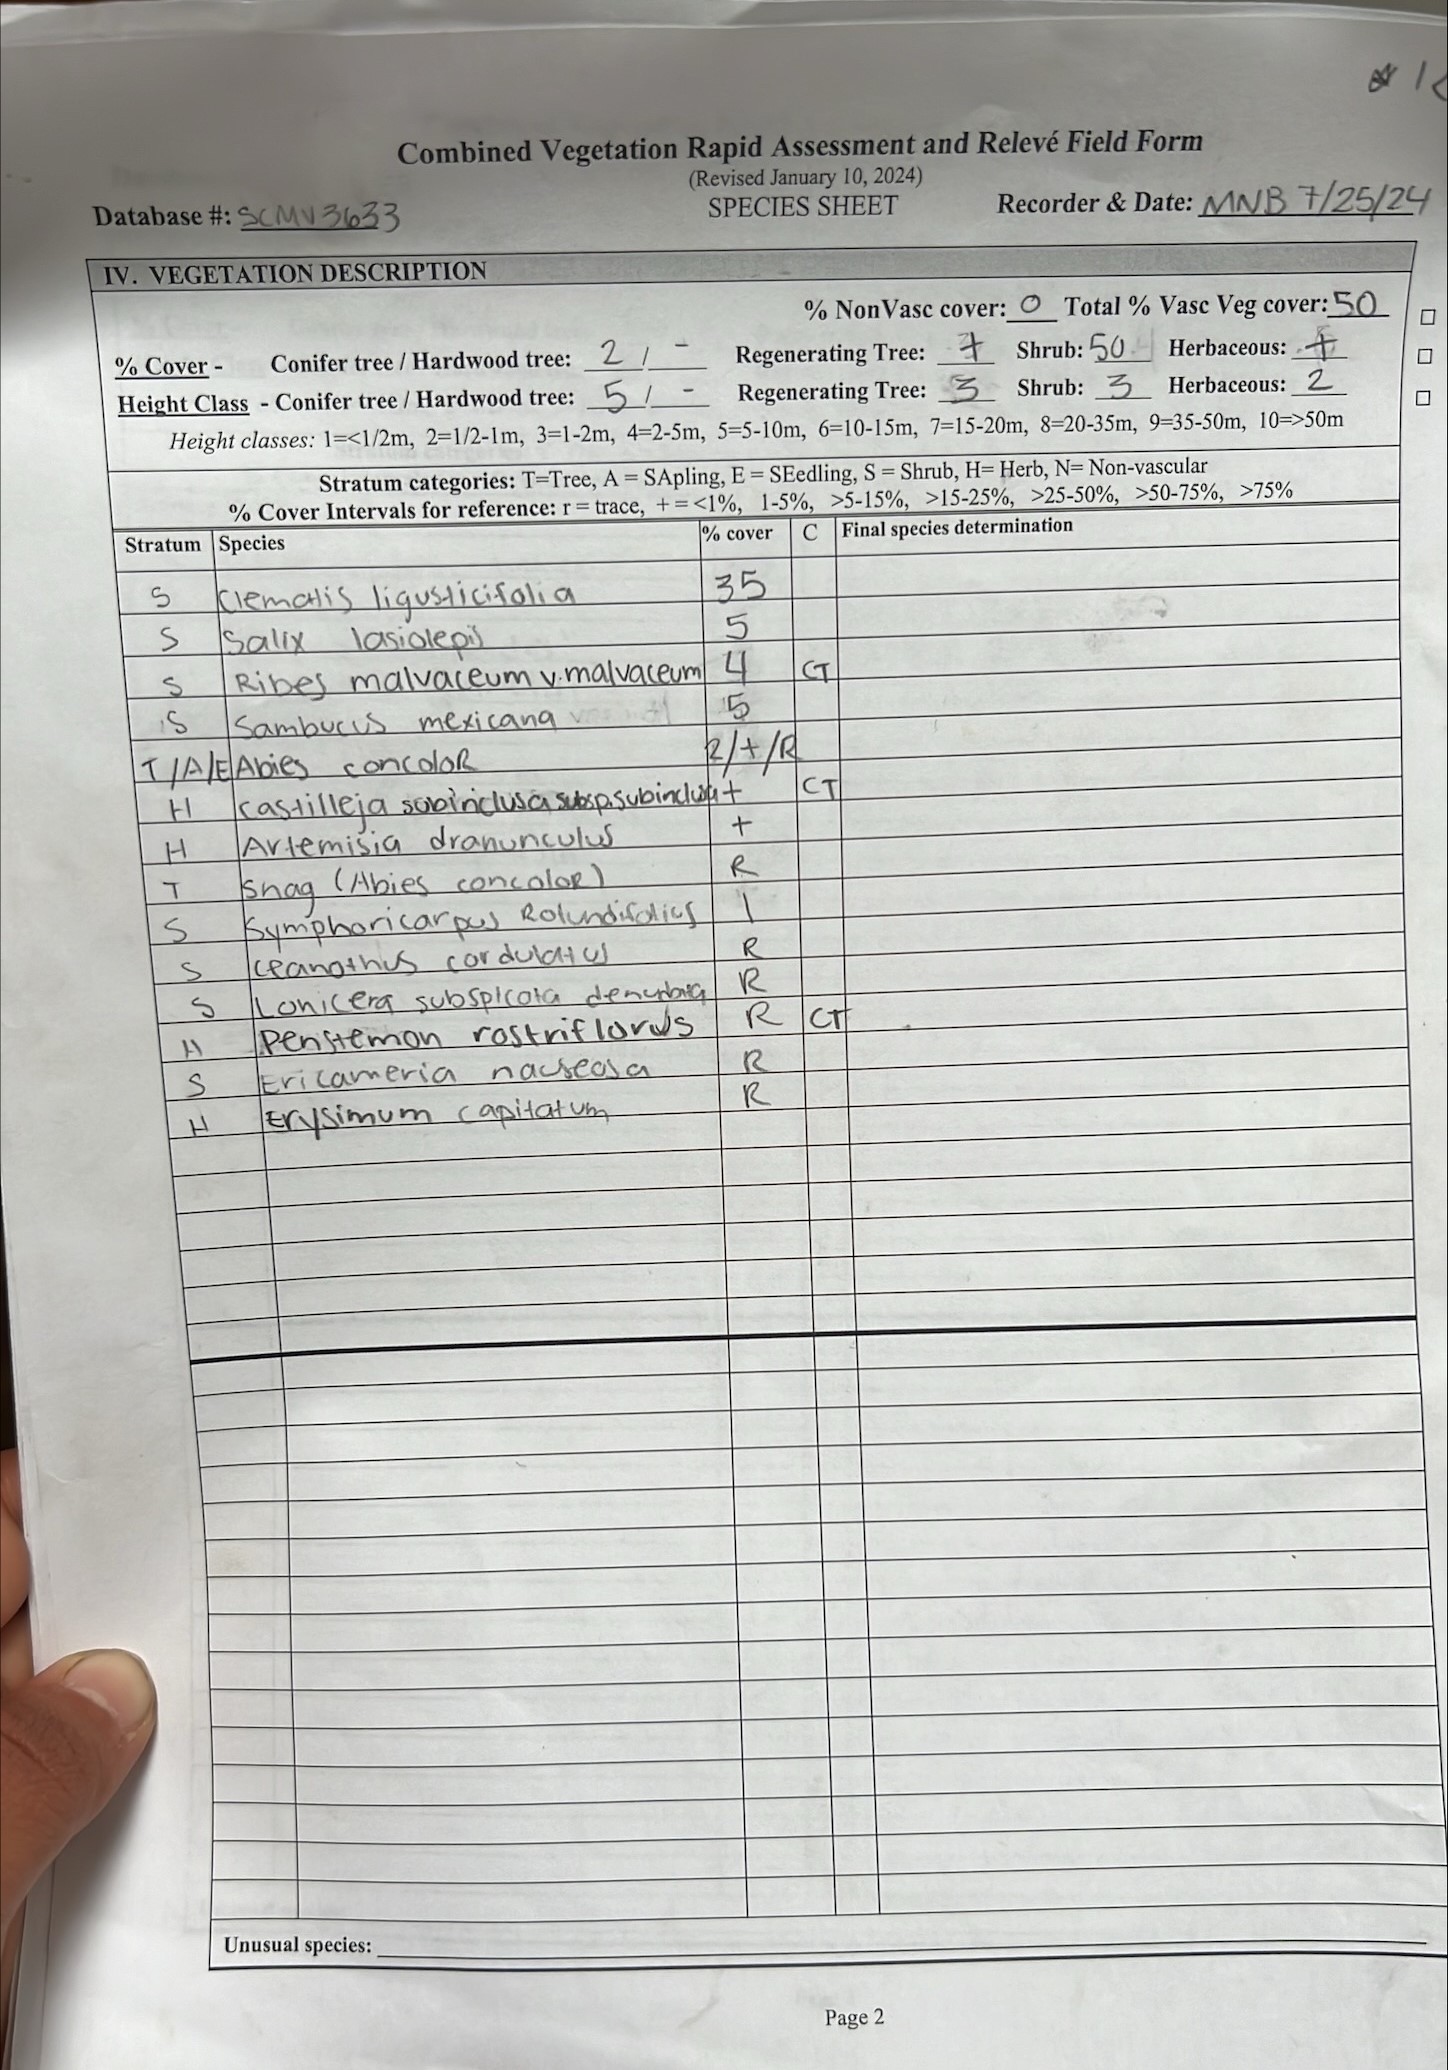 Combined Vegetation Rapid Assessment and Relevé Field Form
(Revised January 10, 2024)
Database #: SCMV3633 SPECIES SHEET Recorder & Date: MNB 7/25/24
IV. VEGETATION DESCRIPTION
% NonVasc cover: 0 Total % Vasc Veg cover: 50
% Cover - Conifer tree / Hardwood tree: 2 / - Regenerating Tree: + Shrub: 50 Herbaceous: +
Height Class - Conifer tree / Hardwood tree: 5 / - Regenerating Tree: 3 Shrub: 3 Herbaceous: 2
Height classes: 1=<1/2m, 2=1/2-1m, 3=1-2m, 4=2-5m, 5=5-10m, 6=10-15m, 7=15-20m, 8=20-35m, 9=35-50m, 10=>50m
Stratum categories: T=Tree, A = SApling, E = SEedling, S = Shrub, H= Herb, N= Non-vascular
% Cover Intervals for reference: r = trace, + = <1%, 1-5%, >5-15%, >15-25%, >25-50%, >50-75%, >75%
Stratum Species % cover C Final species determination
S Clematis ligusticifolia 35
S Salix lasiolepis 5
S Ribes malvaceum v. malvaceum 4 CT
S Sambucus mexicana 5
T/A/E Abies concoloR 2/+/R
H Castilleja subinclusa subsp. subinclusa + CT
H Artemisia dranunculus +
T Snag (Abies concoloR) R
S Symphoricarpus Rotundifolius 1
S Ceanothus cordulatus R
S Lonicera subspicata denudata R
H Penstemon rostriflorus R CT
S Ericameria nauseosa R
H Erysimum capitatum R
Unusual species:
Page 2